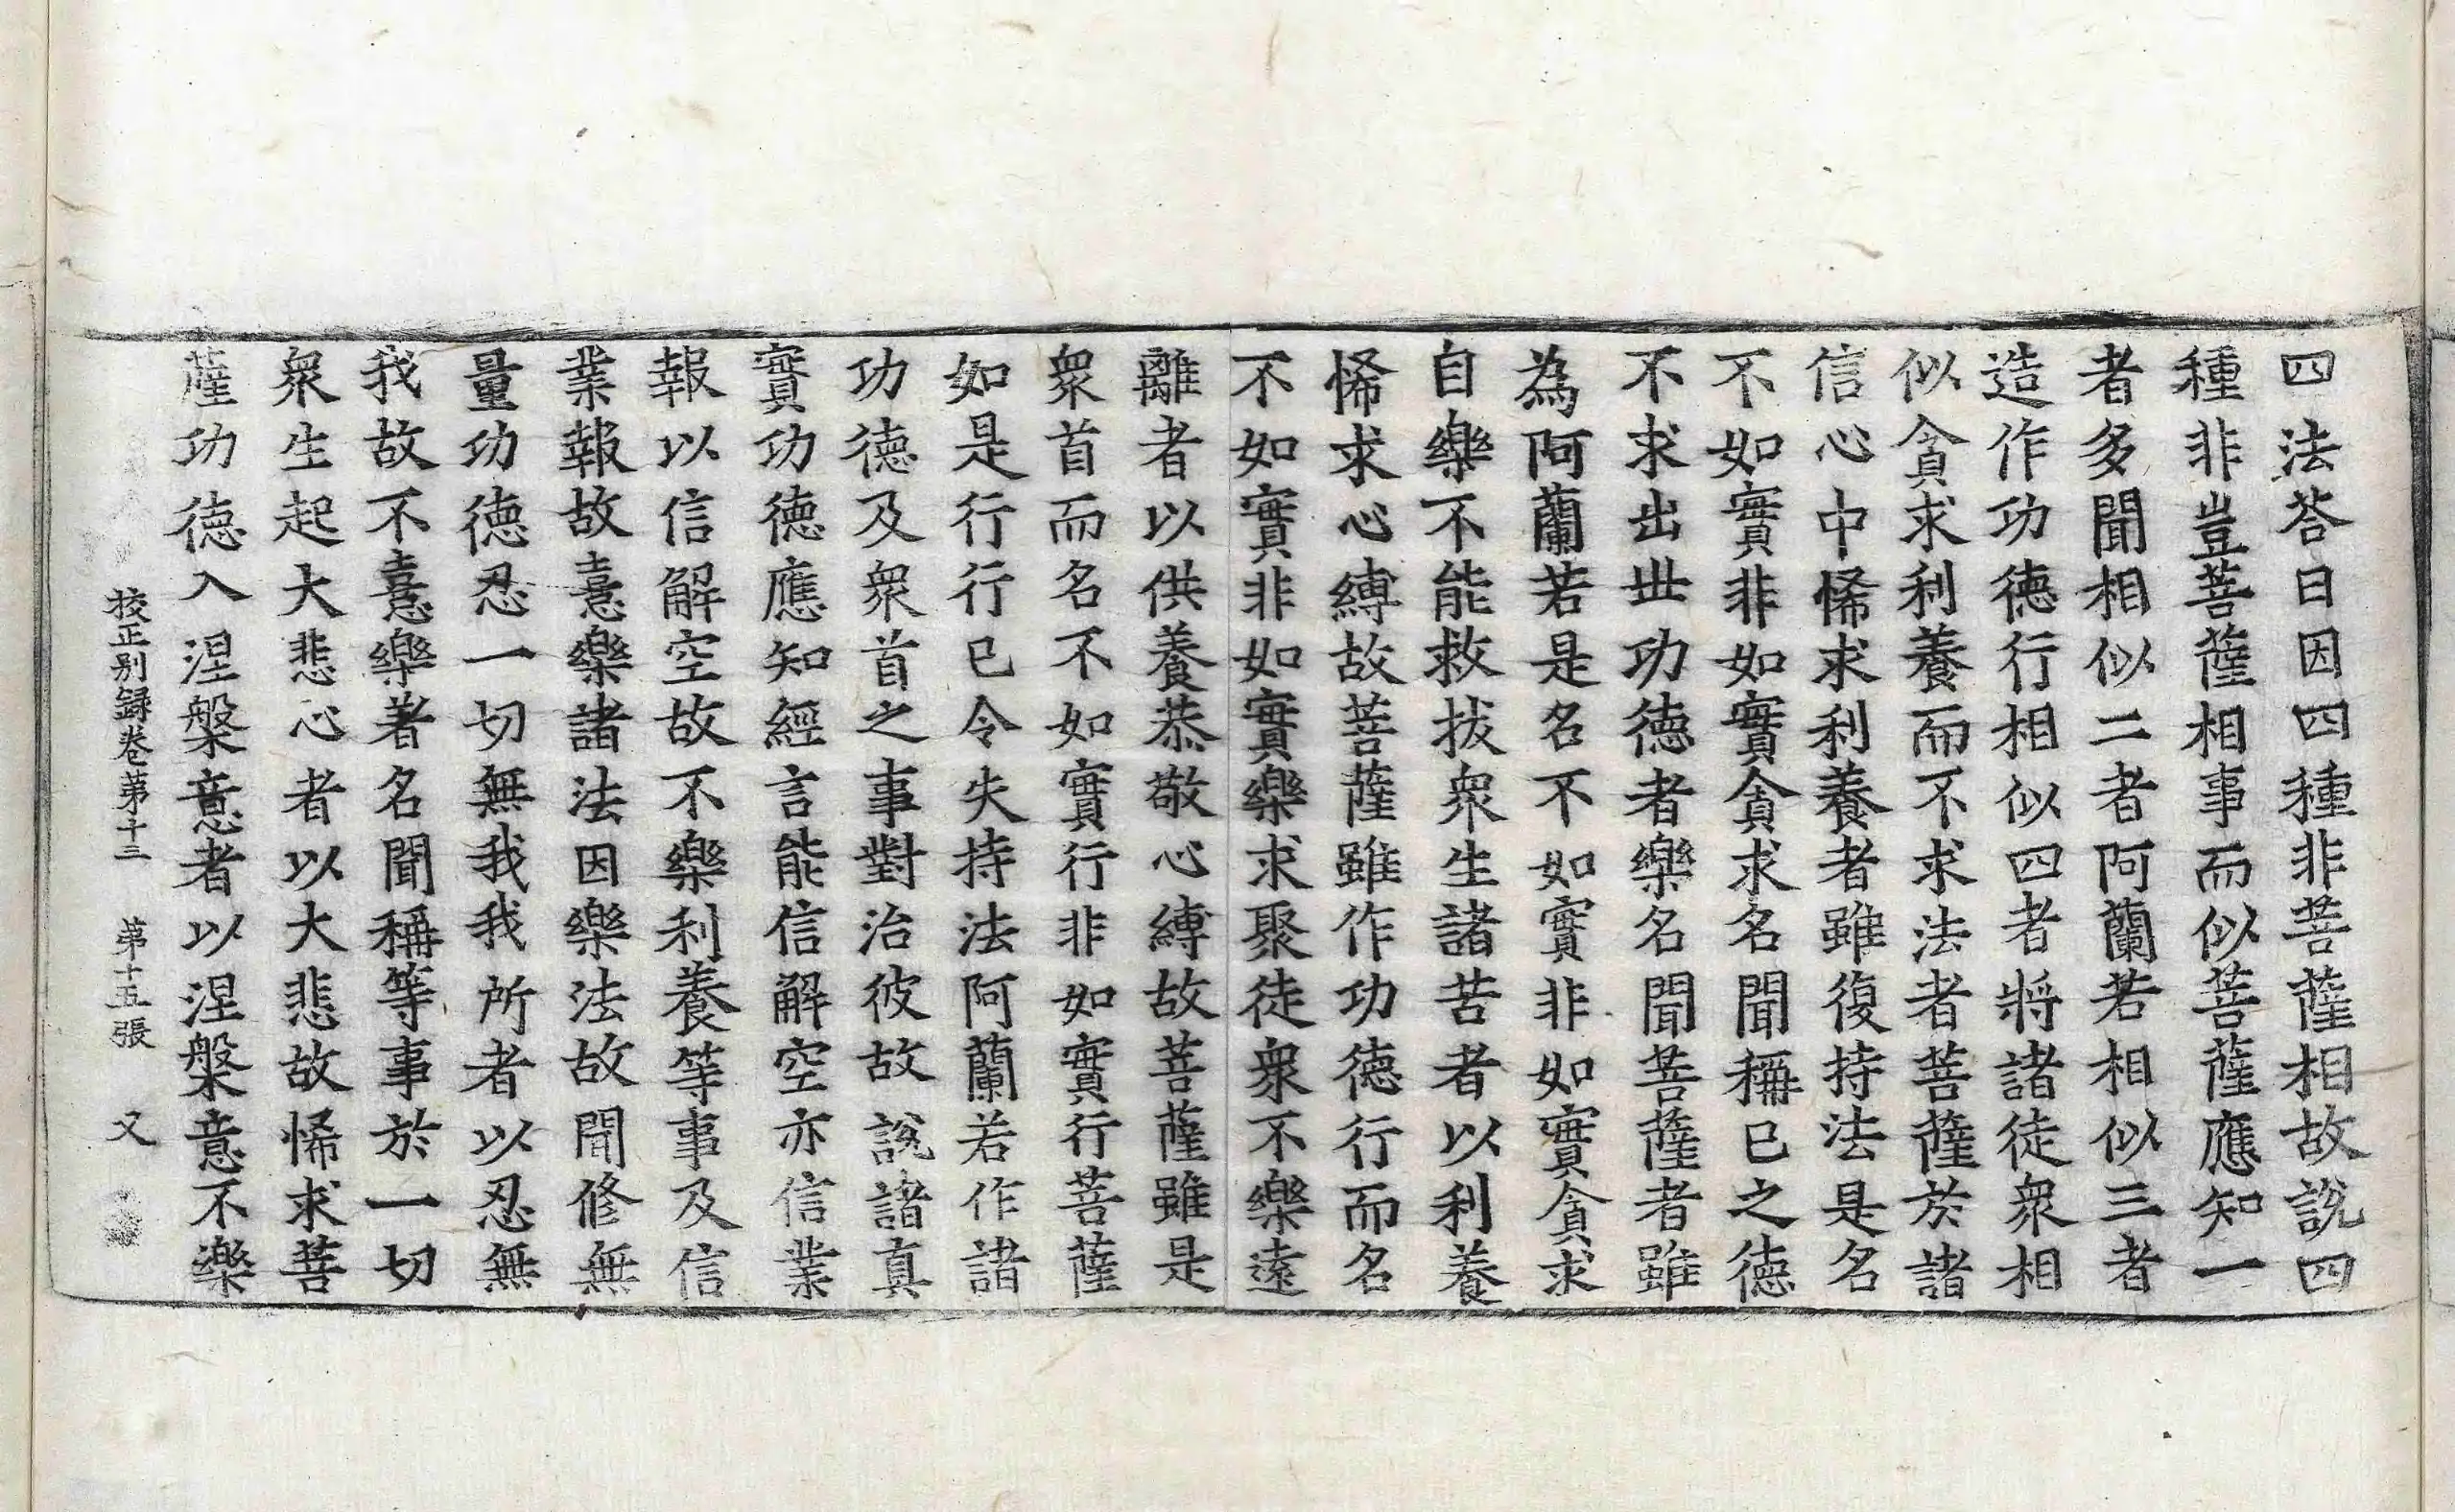 四法荅曰因四種非菩薩相故說四
種非豈菩薩相事而似菩薩應知一
者多聞相似二者阿蘭若相似三者
造作功德行相似四者將諸徒衆相
似貪求利養而不求法者菩薩於諸
信心中悕求利養者雖復持法是名
不如實非如實貪求名聞稱已之德
不求出世功德者樂名聞菩薩者雖
為阿蘭若是名不如實非如實貪求
自樂不能救拔衆生諸苦者以利養
悕求心縛故菩薩雖作功德行而名
不如實非如實樂求聚徒衆不樂遠
離者以供養恭敬心縛故菩薩雖是
衆首而名不如實行非如實行菩薩
如是行行已令失持法阿蘭若作諸
功德及衆首之事對治彼故說諸真
實功德應知經言能信解空亦信業
報以信解空故不樂利養等事及信
業報故憙樂諸法因樂法故聞修無
量功德忍一切無我我所者以忍無
我故不憙樂著名聞稱等事於一切
衆生起大悲心者以大悲故悕求菩
薩功德入涅槃意者以涅槃意不樂
挍正别録卷第十三 第十五張 又